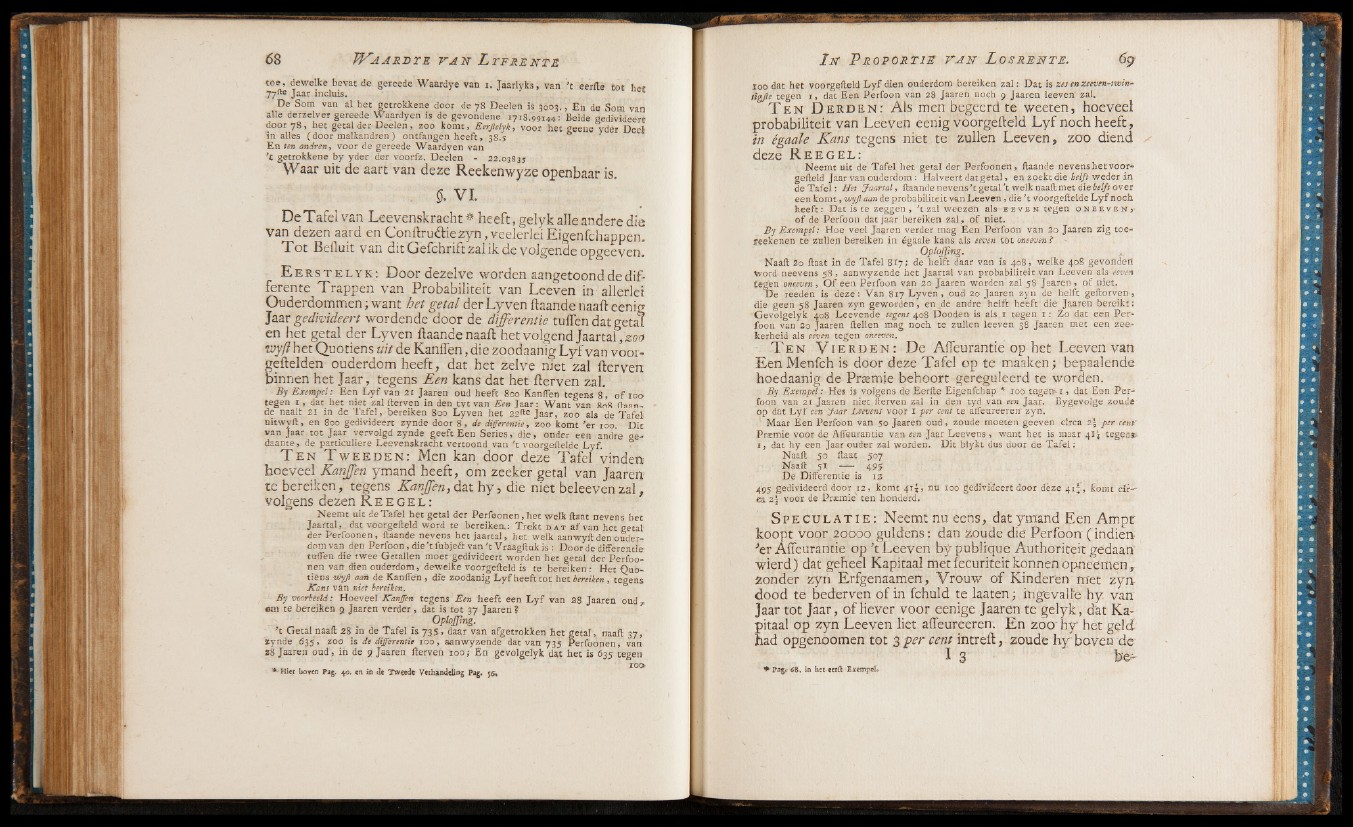 68 WAARDYE VAN LYFRENTE
toe, dewelke bevat de gereede Waardye van 1. Jaarlyks, van 't eerſte tot het
77ſte Jaar incluis.
De Som van al het getrokkene door de 78 Deelen is 3003., En de Som van
alle derzelver gereede Waardyen is de gevondene 1718.99144: Beide gedivideert
door 78, het getal der Deelen, zoo komt, Eerſtelyk, voor het geene yder Deel
in alles (door malkandren) ontfangen heeft, 38.5
En ten andren, voor de gereede Waardyen van
't getrokkene by yder der voorſz. Deelen - 22.03835
Waar uit de aart van deze Reekenwyze openbaar is.
§. VI.
De Tafel van Leevenskracht * heeft, gelyk alle andere die
van dezen aard en Conſtructie zyn, veelerlei Eigenſchappen.
Tot Beſluit van dit Geſchrift zal ik de volgende opgeeven.
EERSTELYK: Door dezelve worden aangetoond de dif-
ferente Trappen van Probabiliteit van Leeven in allerlei
Ouderdommen; want het getal der Lyven ſtaande naaſt eenig
Jaar gedivideert wordende door de differentie tuſſen dat getal
en het getal der Lyven ſtaande naaſt het volgend Jaartal, zoo
wyſt het Quotiens uit de Kanſſen, die zoodaanig Lyf van voor-
geſtelden ouderdom heeft, dat het zelve niet zal ſterven
binnen het Jaar, tegens Een kans dat het ſterven zal.
By Exempel: Een Lyf van 21 Jaaren oud heeft 800 Kanſſen tegens 8, of 100
tegen 1, dat het niet zal ſterven in den tyt van Een Jaar: Want van 808 ſtaan-
de naaſt 21 in de Tafel, bereiken 800 Lyven het 22ſte Jaar, zoo als de Tafel
uitwyſt, en 800 gedivideert zynde door 8, de differentie, zoo komt 'er 100. Dit
van Jaar tot Jaar vervolgd zynde geeft Een Series, die, onder een andre ge-
daante, de particuliere Leevenskracht vertoond van 't voorgeſtelde Lyf.
TEN TWEEDEN: Men kan door deze Tafel vinden
hoeveel Kanſſen ymand heeft, om zeeker getal van Jaaren
te bereiken, tegens Kanſſen, dat hy, die niet beleeven zal,
volgens dezen REEGEL:
Neemt uit de Tafel het getal der Perſoonen, het welk ſtaat nevens het
Jaartal, dat voorgeſteld word te bereiken.: Trekt DAT af van het getal
der Perſoonen, ſtaande nevens het jaartal, het welk aanwyſt den ouder-
dom van den Perſoon, die 't ſubject van 't Vraagſtuk is: Door de differentie
tuſſen die twee Getallen moet gedivideert worden het getal der Perſoo-
nen van dien ouderdom, dewelke voorgeſteld is te bereiken: Het Quo-
tiens wyſt aan de Kanſſen, die zoodanig Lyf heeft tot het bereiken, tegens
Kans van niet bereiken.
By voorbeeld: Hoeveel Kanſſen tegens Een heeft een Lyf van 28 Jaaren oud,
om te bereiken 9 Jaaren verder, dat is tot 37 Jaaren?
Oploſſing.
't Getal naaſt 28 in de Tafel is 735, daar van afgetrokken het getal, naaſt 37,
zynde 635, zoo is de differentie 100, aanwyzende dat van 735 Perſoonen, van
28 Jaaren oud, in de 9 Jaaren ſterven 100; En gevolgelyk dat het is 635 tegen
100
* Hier boven Pag. 40. en in de Tweede Verhandeling Pag. 56.
IN PROPORTIE VAN LOSRENTE. 69
100 dat het voorgeſteld Lyf dien ouderdom bereiken zal: Dat is zes en zeeven-twin-
tigſte tegen 1, dat Een Perſoon van 28 Jaaren noch 9 Jaaren leeven zal.
TEN DERDEN: Als men begeerd te weeten, hoeveel
probabiliteit van Leeven eenig voorgeſteld Lyf noch heeft,
in égaale Kans tegens niet te zullen Leeven, zoo diend
deze REEGEL:
Neemt uit de Tafel het getal der Perſoonen, ſtaande nevens het voor-
geſteld Jaar van ouderdom: Halveert dat getal, en zoekt die helft weder in
de Tafel: Het Jaartal, ſtaande nevens 't getal 't welk naaſt met die helft over
een komt, wyſt aan de probabiliteit van Leeven, die 't voorgeſtelde Lyf noch
heeft: Dat is te zeggen, 't zal weezen als EEVEN tegen ONEEVEN,
of de Perſoon dat jaar bereiken zal, of niet.
By Exempel: Hoe veel Jaaren verder mag Een Perſoon van 20 Jaaren zig toe-
reekenen te zullen bereiken in égaale kans als eeven tot oneeven?
Oploſſing.
Naaſt 20 ſtaat in de Tafel 817: de helft daar van is 408, welke 408 gevonden
word neevens 58, aanwyzende het Jaartal van probabiliteit van Leeven als eeven
tegen oneeven, Of een Perſoon van 20 Jaaren worden zal 58 Jaaren, of niet.
De reeden is deze: Van 817 Lyven, oud 20 Jaaren zyn de helft geſtorven,
die geen 58 Jaaren zyn geworden, en de andre helft heeft die Jaaren bereikt:
Gevolgelyk 408 Leevende tegens 408 Dooden is als 1 tegen 1: Zo dat een Per-
ſoon van 20 Jaaren ſtellen mag noch te zullen leeven 38 Jaaren met een zee-
kerheid als eeven tegen oneeven.
TEN VIERDEN: De Aſſeurantie op het Leeven van
Een Menſch is door deze Tafel op te maaken; bepaalende
hoedaanig de Præmie behoort gereguleerd te worden.
By Exempel: Hes is volgens de Eerſte Eigenſchap * 100 tegen 1, dat Een Per-
ſoon van 21 Jaaren niet ſterven zal in den tyd van een Jaar. Bygevolge zoude
op dat Lyf een Jaar Leevens voor 1 per cent te aſſeureeren zyn.
Maar Een Perſoon van 50 Jaaren oud, zoude moeten geeven circa 2½ per cent
Præmie voor de Aſſeurantie van een Jaar Leevens, want het is maar 41¼ tegens
1, dat hy een Jaar ouder zal worden. Dit blykt dus door de Tafel:
Naaſt 50 ſtaat 507
Naaſt 51 —— 495
De Differentie is 12
495 gedivideerd door 12, komt 41¼, nu 100 gedivideert door deze 41¼, komt cir-
ca 2½ voor de Præmie ten honderd.
SPECULATIE: Neemt nu eens, dat ymand Een Ampt
koopt voor 20000 guldens: dan zoude die Perſoon (indien
'er Aſſeurantie op 't Leeven by publique Authoriteit gedaan
wierd) dat geheel Kapitaal met ſecuriteit konnen opneemen,
zonder zyn Erfgenaamen, Vrouw of Kinderen met zyn
dood te bederven of in ſchuld te laaten; ingevalle hy van
Jaar tot Jaar, of liever voor eenige Jaaren te gelyk, dat Ka-
pitaal op zyn Leeven liet aſſeureeren. En zoo hy het geld
had opgenoomen tot 3 per cent intreſt, zoude hy boven de
I 3 be-
* Pag. 68. in het eerſt Exempel.